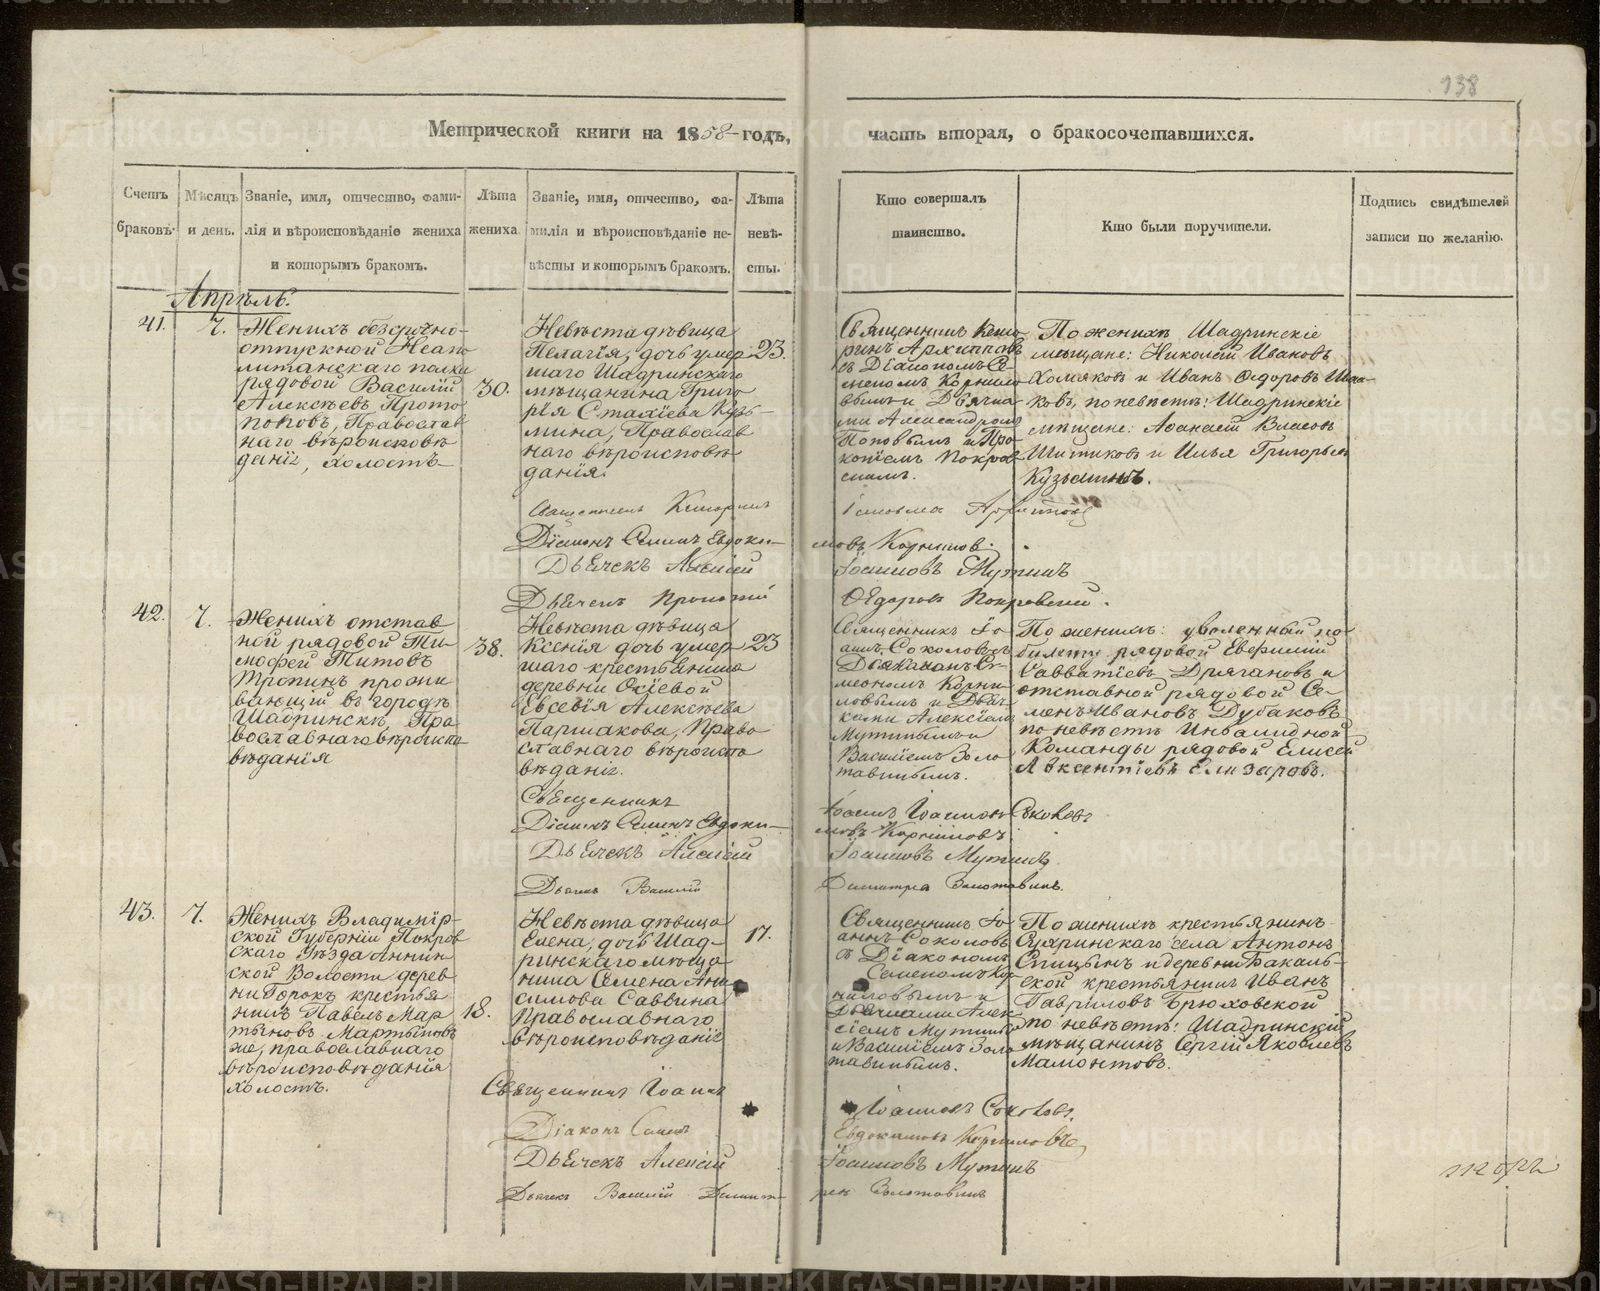 138
Метрической книги на 1858 годъ,
часть вторая, о бракосочетавшихся.
Счетъ браковъ.
Мѣсяцъ и день.
Званіе, имя, отчество, фами-
лія и вѣроисповѣданіе жениха
и которымъ бракомъ.
Лѣта жениха.
Званіе, имя, отчество, фа-
милія и вѣроисповѣданіе не-
вѣсты и которымъ бракомъ.
Лѣта невѣ-
сты.
Кто совершалъ
таинство.
Кто были поручители.
Подпись свидѣтелей
записи по желанію.
Апрѣль.
41.
7.
Женихъ безсрочно-
отпускной Неапо
литанскаго полка
рядовой Василій
Алексѣевъ Прото
поповъ, Православ
наго вѣроисповѣ
данія, холостъ
30.
Невѣста дѣвица
Пелагія, дочь умер
шаго Шадринскаго
мѣщанина Григо
рія Стахіева Кузь-
мина, Православ
наго вѣроисповѣ
данія.
23.
Священникъ
ринъ Архиповъ
съ Діакономъ Се-
меномъ Корнило
вымъ и Дьячка
ми Александромъ
Поповымъ и Про
копіемъ Покров
скимъ.
По женихѣ Шадринскіе
мѣщане: Николай Ивановъ
Хомяковъ и Иванъ Ѳедоровъ
ковъ, по невѣстѣ: Шадринскіе
мѣщане: Аѳанасій Власовъ
Шитиковъ и Илья Григорьевъ
Кузьминъ.
Священникъ
Діаконъ Семенъ Евдоки-
мовъ Корниловъ.
Дьячекъ Алексій
Іоанновъ Мутинъ
Дьячекъ Прокопій
Ѳедоровъ Покровскій.
42.
7.
Женихъ отстав
ной рядовой Ти
моѳей Титовъ
Тропинъ прожи
вающій въ городѣ
Шадринскѣ, Пра
вославнаго вѣроиспо
вѣданія
38.
Невѣста дѣвица
Ксенія дочь умер
шаго крестьянина
деревни Осіевой
Евсевія Алексѣева
Паршакова, Право
славнаго вѣроиспо
вѣданія.
23
Священникъ Іо-
аннъ Соколовъ съ
Діакономъ Се-
меономъ Корни-
ловымъ и Дьяч-
ками Алексіемъ
Мутинымъ и
Василіемъ Золо
тавинымъ.
По женихѣ: уволенный по
билету рядовой Евфимій
Савватіевъ Дрягановъ и
отставной рядовой Се-
менъ Ивановъ Дубаковъ
по невѣстѣ Инвалидной
Команды рядовой Елисей
Авксентіевъ Елизаровъ.
Священникъ
Іоаннъ Іоанновъ Соколовъ
Діаконъ Семенъ Евдоки-
мовъ Корниловъ
Дьячекъ Алексій
Іоанновъ Мутинъ
Дьячекъ Василій
Димитріевъ Золотавинъ.
43.
7.
Женихъ Владимір-
ской Губерніи Покров
скаго Уѣзда Аннин
ской Волости дерев
ни Горокъ крестья
нинъ Павелъ Мар
тыновъ Мартыновъ
же, православнаго
вѣроисповѣданія
холостъ.
18.
Невѣста дѣвица
Елена, дочь Шад-
ринскаго мѣща
нина Семена Ани
симова Саввина
Православнаго
вѣроисповѣданія
17.
Священникъ Іо-
аннъ Соколовъ
съ Діакономъ
Семеномъ Кор
ниловымъ и
Дьячками Алек
сіемъ Мутинымъ
и Василіемъ Золо
тавинымъ.
По женихѣ крестьянинъ
Сухринскаго села Антонъ
Спицынъ и деревни Бакаль-
ской крестьянинъ Иванъ
Гавриловъ Брюховской
по невѣстѣ: Шадринскій
мѣщанинъ Сергій Яковлевъ
Мамонтовъ.
Священникъ Іоаннъ
Іоанновъ Соколовъ.
Діаконъ Семенъ
Евдокимовъ Корниловъ
Дьячекъ Алексій
Іоанновъ Мутинъ
Дьячекъ Василій Димит-
ріевъ Золотавинъ
METRIKI.GASO-URAL.RU